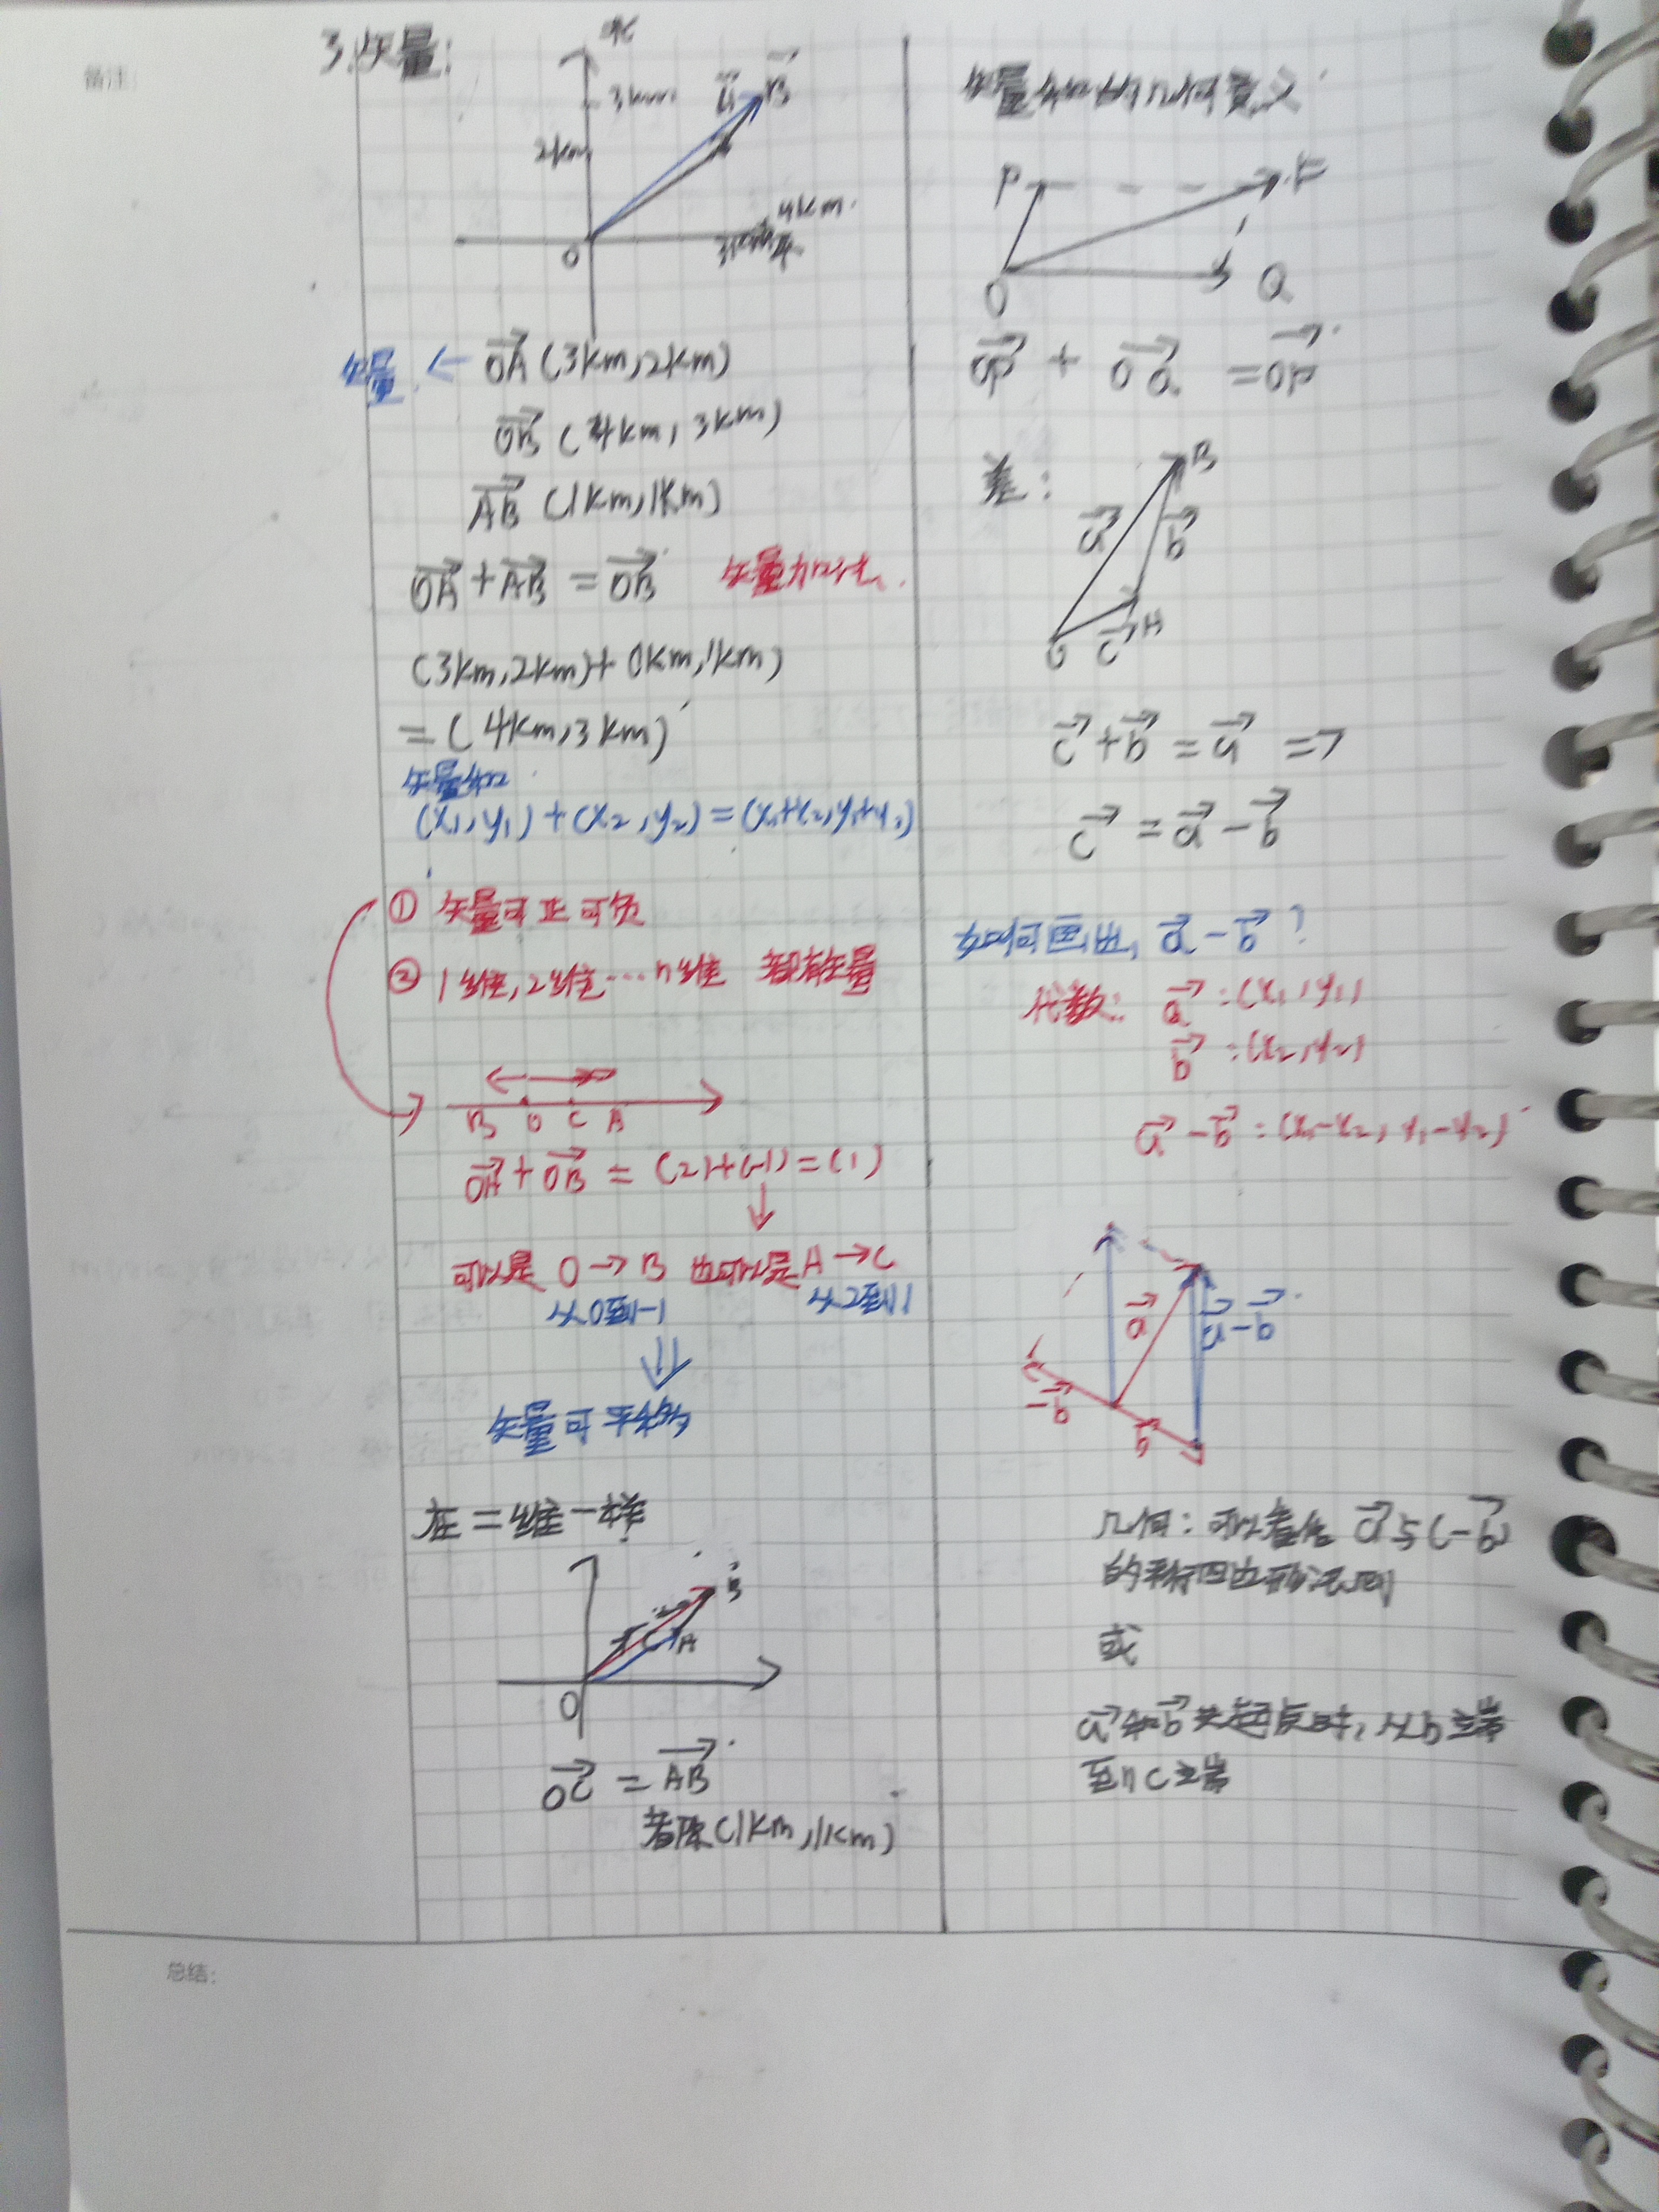 备注:
3.矢量:
北
3km
2km
A
B
4km
3km
O
矢量 ← OA (3km,2km)
OB (4km, 3km)
AB (1km,1km)
OA + AB = OB 矢量加法
(3km,2km)+(1km,1km)
=(4km,3km)
矢量和
(x₁,y₁)+(x₂,y₂)=(x₁+x₂,y₁+y₂)
① 矢量可正可负
② 1维,2维…n维 都有矢量
B O C A
OA + OB = (2)+(-1)=(1)
可以是 O→B 也可以是 A→C
从0到-1 从2到1
矢量可平移
在二维一样
B
C A
O
OC = AB
都除(1km,1km)
矢量和的几何意义
P F
O Q
OP + OQ = OF
差:
B
a b
O c A
c + b = a ⇒
c = a - b
如何画出, a - b ?
代数: a :(x₁,y₁)
b :(x₂,y₂)
a - b :(x₁-x₂, y₁-y₂)
a a-b
-b b
几何: 可以看作 a与(-b)
的平行四边形法则
或
a和b共起点时,从b之端
到C之端
总结: